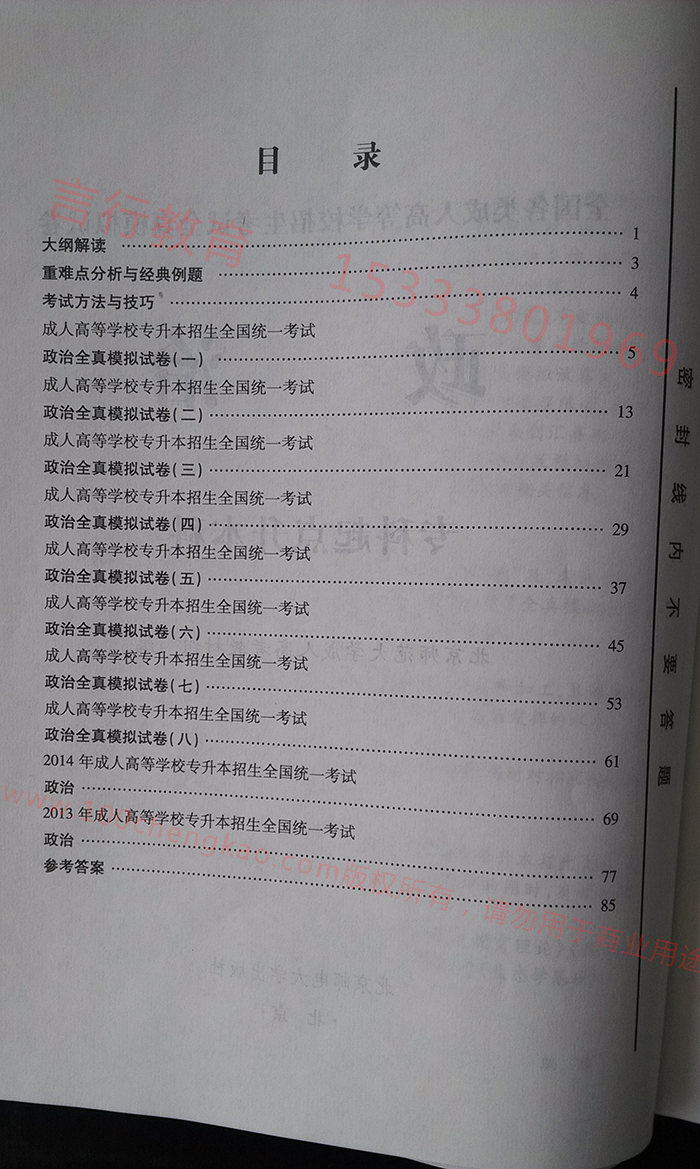 目 录
大纲解读 …… 1
重难点分析与经典例题 …… 3
考试方法与技巧 …… 4
成人高等学校专升本招生全国统一考试
政治全真模拟试卷(一) …… 5
成人高等学校专升本招生全国统一考试
政治全真模拟试卷(二) …… 13
成人高等学校专升本招生全国统一考试
政治全真模拟试卷(三) …… 21
成人高等学校专升本招生全国统一考试
政治全真模拟试卷(四) …… 29
成人高等学校专升本招生全国统一考试
政治全真模拟试卷(五) …… 37
成人高等学校专升本招生全国统一考试
政治全真模拟试卷(六) …… 45
成人高等学校专升本招生全国统一考试
政治全真模拟试卷(七) …… 53
成人高等学校专升本招生全国统一考试
政治全真模拟试卷(八) …… 61
2014 年成人高等学校专升本招生全国统一考试
政治 …… 69
2013 年成人高等学校专升本招生全国统一考试
政治 …… 77
参考答案 …… 85
密封线内不要答题
言行教育 15333801969
www.120chengkao.com版权所有，请勿用于商业用途